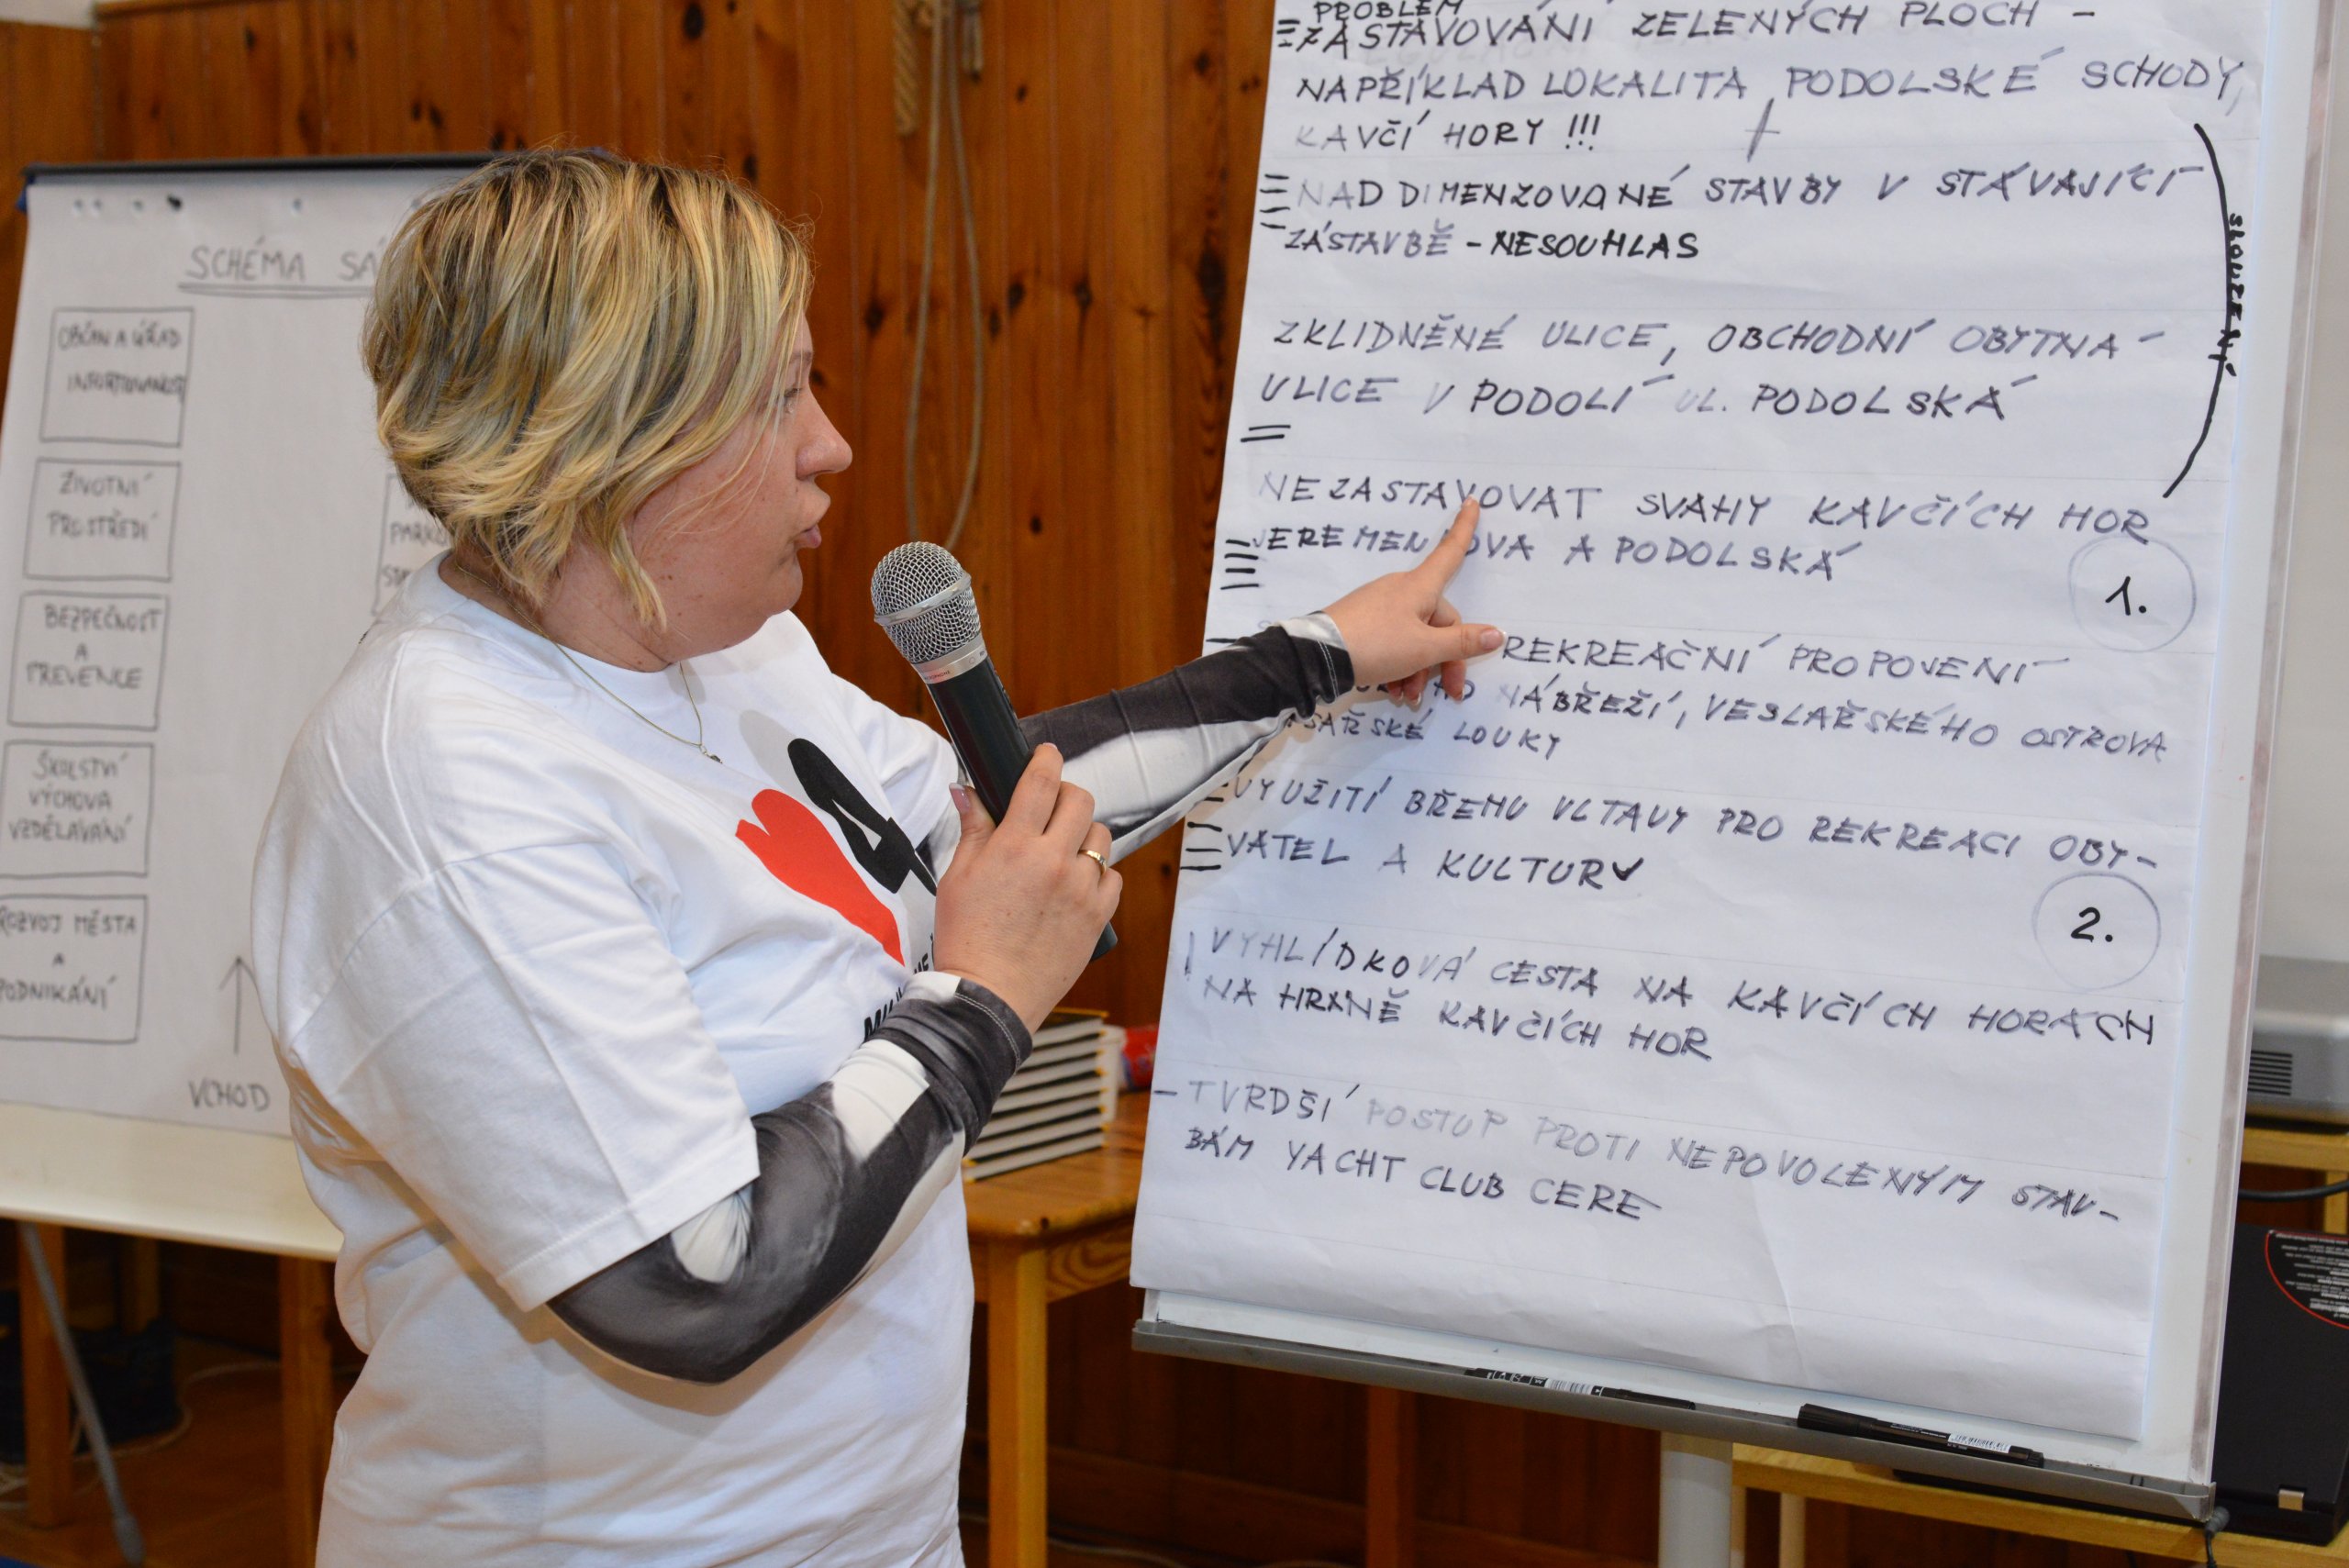 SCHÉMA
OBČAN A ÚŘAD
INFORMOVANOST
ŽIVOTNÍ
PROSTŘEDÍ
BEZPEČNOST
A
PREVENCE
ŠKOLSTVÍ
VÝCHOVA
VZDĚLÁVÁNÍ
ROZVOJ MĚSTA
A
PODNIKÁNÍ
VCHOD
PROBLÉM
ZASTAVOVÁNÍ ZELENÝCH PLOCH -
NAPŘÍKLAD LOKALITA PODOLSKÉ SCHODY,
KAVČÍ HORY !!!
NADDIMENZOVANÉ STAVBY V STÁVAJÍCÍ
ZÁSTAVBĚ - NESOUHLAS
ZKLIDNĚNÉ ULICE, OBCHODNÍ OBYTNÁ
ULICE V PODOLÍ UL. PODOLSKÁ
NEZASTAVOVAT SVAHY KAVČÍCH HOR
JEREMENKOVA A PODOLSKÁ
1.
SLOUŽENÝ
REKREAČNÍ PROPOJENÍ
NÁBŘEŽÍ, VESLAŘSKÉHO OSTROVA
LOUKY
VYUŽITÍ BŘEHU VLTAVY PRO REKREACI OBY-
VATEL A KULTURY
2.
VYHLÍDKOVÁ CESTA NA KAVČÍCH HORÁCH
NA HRANĚ KAVČÍCH HOR
- TVRDŠÍ POSTUP PROTI NEPOVOLENÝM STAV-
BÁM YACHT CLUB CERE